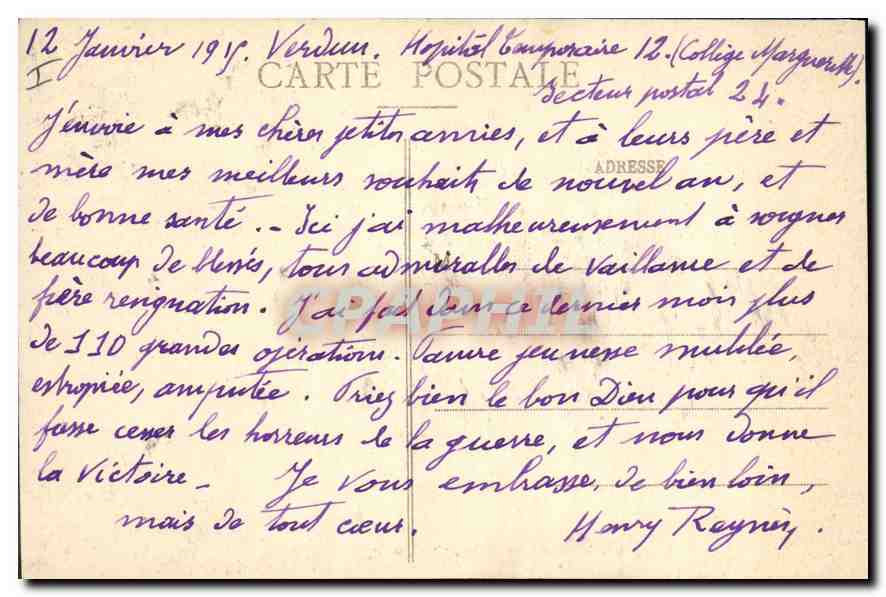 12 Janvier 1915. Verdun. Hopitâl Temporaire 12. (Collège Marguerite).
I
CARTE POSTALE
Secteur postal 24.
J'envoie à mes chères petites amies, et à leurs père et
ADRESSE
mère mes meilleurs souhaits de nouvel an, et
de bonne santé. - Ici j'ai malheureusement à soigner
beaucoup de blessés, tous admirables de vaillance et de
fière résignation. J'ai fait dans ce dernier mois plus
CPAPHIL
de 110 grandes opérations. Pauvre jeunesse mutilée,
estropiée, amputée. Priez bien le bon Dieu pour qu'il
fasse cesser les horreurs de la guerre, et nous donne
la Victoire - Je vous embrasse, de bien loin,
mais de tout cœur. Henry